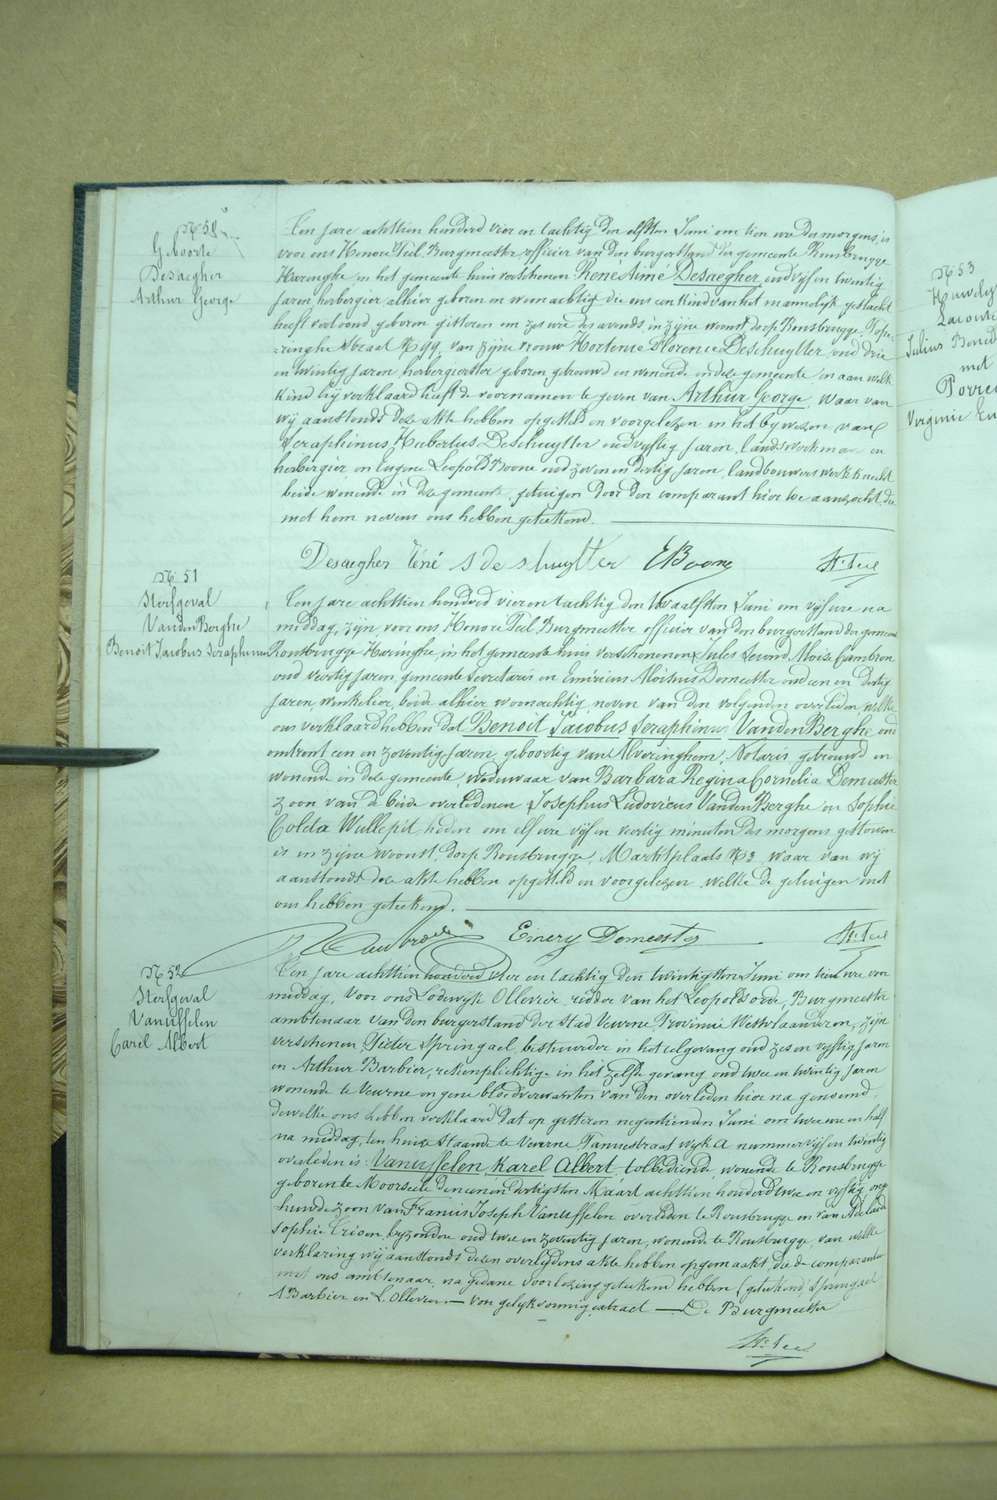 N° 50
Geboorte
Desaegher
Arthur George
Ten jare achttien honderd vier en tachtig den elfsten Juni om tien ure des morgens, is
voor ons Honoré Teil, Burgmeester, officier van den burgerstand der gemeente Rousbrugge
Haringhe, in het gemeente huis verschenen René Aimé Desaegher, oud vijf en twintig
Jaren herbergier alhier geboren en woonachtig die ons een Kind van het mannelijk geslacht
heeft vertoond, geboren gisteren om zes ure des avonds, in zijne woonst dorp Rousbrugge Pope=
=ringhe Straat N° 99, van zijne vrouw Hortense Florence Deschuytter, oud drie
en twintig jaren herbergierster geboren gehuwd en wonende in deze gemeente, en aan welk
Kind hij verklaard heeft de voornamen te geven van Arthur George, waar van
wij aanstonds deze akte hebben opgesteld en voorgelezen in het bijwezen van
Seraphinus Hubertus Deschuytter oud vijftig jaren, landswerkman en
herbergier en Eugene Leopold Boone oud zeven en dertig Jaren, landbouwerswerkknecht
beide wonende in deze gemeente, getuigen door den comparant hier toe aanzocht, die
met hem nevens ons hebben geteekend.
Desaegher Réné S de shuytter E Boone Hré Teil
N° 51
Sterfgeval
VandenBerghe
Benoit Jacobus Seraphinus
Ten jare achttien honderd vier en tachtig den twaalfsten Juni om vijf ure na
middag, zijn voor ons Honoré Teil, Burgmeester officier van den burgerstand der gemeente
Rousbrugge Haringhe, in het gemeente huis verschenen Jules Alois Cambron
oud veertig Jaren, gemeente secretaris en Emericus Aloisius Demeester oud een en dertig
jaren, winkelier, beide alhier woonachtig neven van den volgenden overleden, welke
ons verklaard hebben dat Benoit Jacobus Seraphinus VandenBerghe, oud
omtrent een en zeventig Jaren, geboortig van Alveringhem, Notaris getrouwd en
wonende in deze gemeente, weduwaar van Barbara Regina Cornelia Demeester
zoon van de beide overledenen Josephus Ludovicus VandenBerghe en Sophie
Coleta Wullepit heden om elf ure vijf en veertig minuten des morgens gestorven
is in zijne woonst, dorp Rousbrugge, Marktplaats N° 2, waar van wij
aanstonds deze akte hebben opgesteld en voorgelezen, welke de getuigen met
ons hebben geteekend.
Emery Demeester Hré Teil
N° 52
Sterfgeval
Vanusselen
Carel Albert
Ten jare achttien honderd vier en tachtig den twintigsten Juni om tien ure voor
middag, Voor ons Lodewijk Ollevier, ridder van het Leopolds orde, Burgmeester
ambtenaar van den burgerstand der Stad Veurne, Provincie Westvlaanderen, zijn
verschenen, Pieter Springael, bestuurder in het celgevang oud zes en vijftig jaren
en Arthur Barbier, rekenplichtige in het zelfde gevang oud twee en twintig Jaren
wonende te Veurne en gene bloedverwanten van den overleden hier na genoemd
dewelke ons hebben verklaard dat op gisteren negentienden Juni om twee en half
na middag, ten huize staande te Veurne Pannestraat wijk A nummer vijf en twintig
overleden is: Vanusselen, Karel Albert, tolbediende, wonende te Rousbrugge
geboren te Moorseele den een en dertigsten Maart achttien honderd twee en vijftig onge
huwde zoon van Francis Joseph Vanusselen overleden te Rousbrugge en van Adelaide
Sophie Crison, byzondere oud twee en zeventig jaren, wonende te Rousbrugge van welke
verklaring wij aanstonds dezen overlijdens akte hebben opgemaakt die de comparanten
met ons ambtenaar na gedane voorlezing geteekend hebben (geteekend) Springael
A Barbier en L. Ollevier. — Voor gelijkvormig extract — De Burgmeester
Hré Teil
N° 53
Lacont
Julius Bened
met
Porre
Virginie Eu